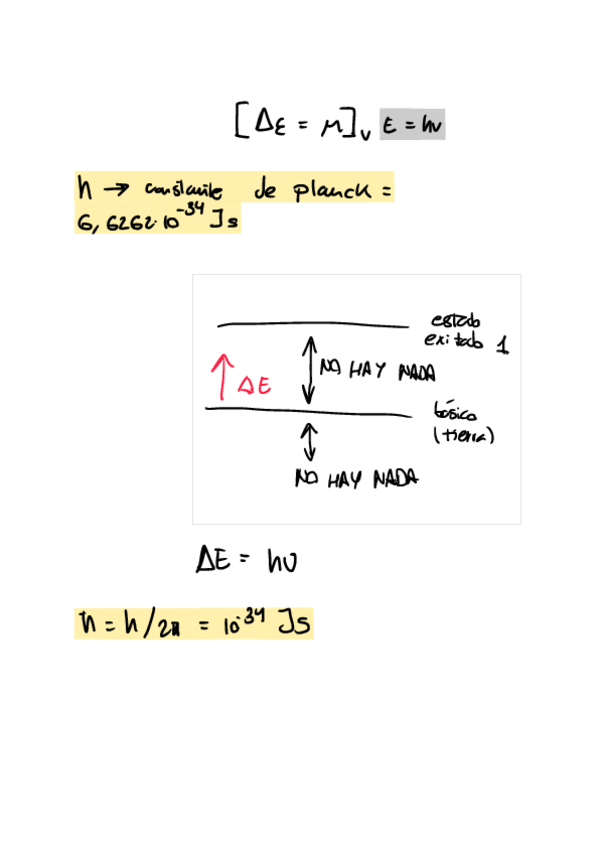 [Δε = μ]ᵥ E = hν
h → constante de planck =
6,6262·10⁻³⁴ Js
estado
exitado 1
NO HAY NADA
ΔE
básico
(tierra)
NO HAY NADA
ΔE = hν
ħ = h/2π = 10⁻³⁴ Js